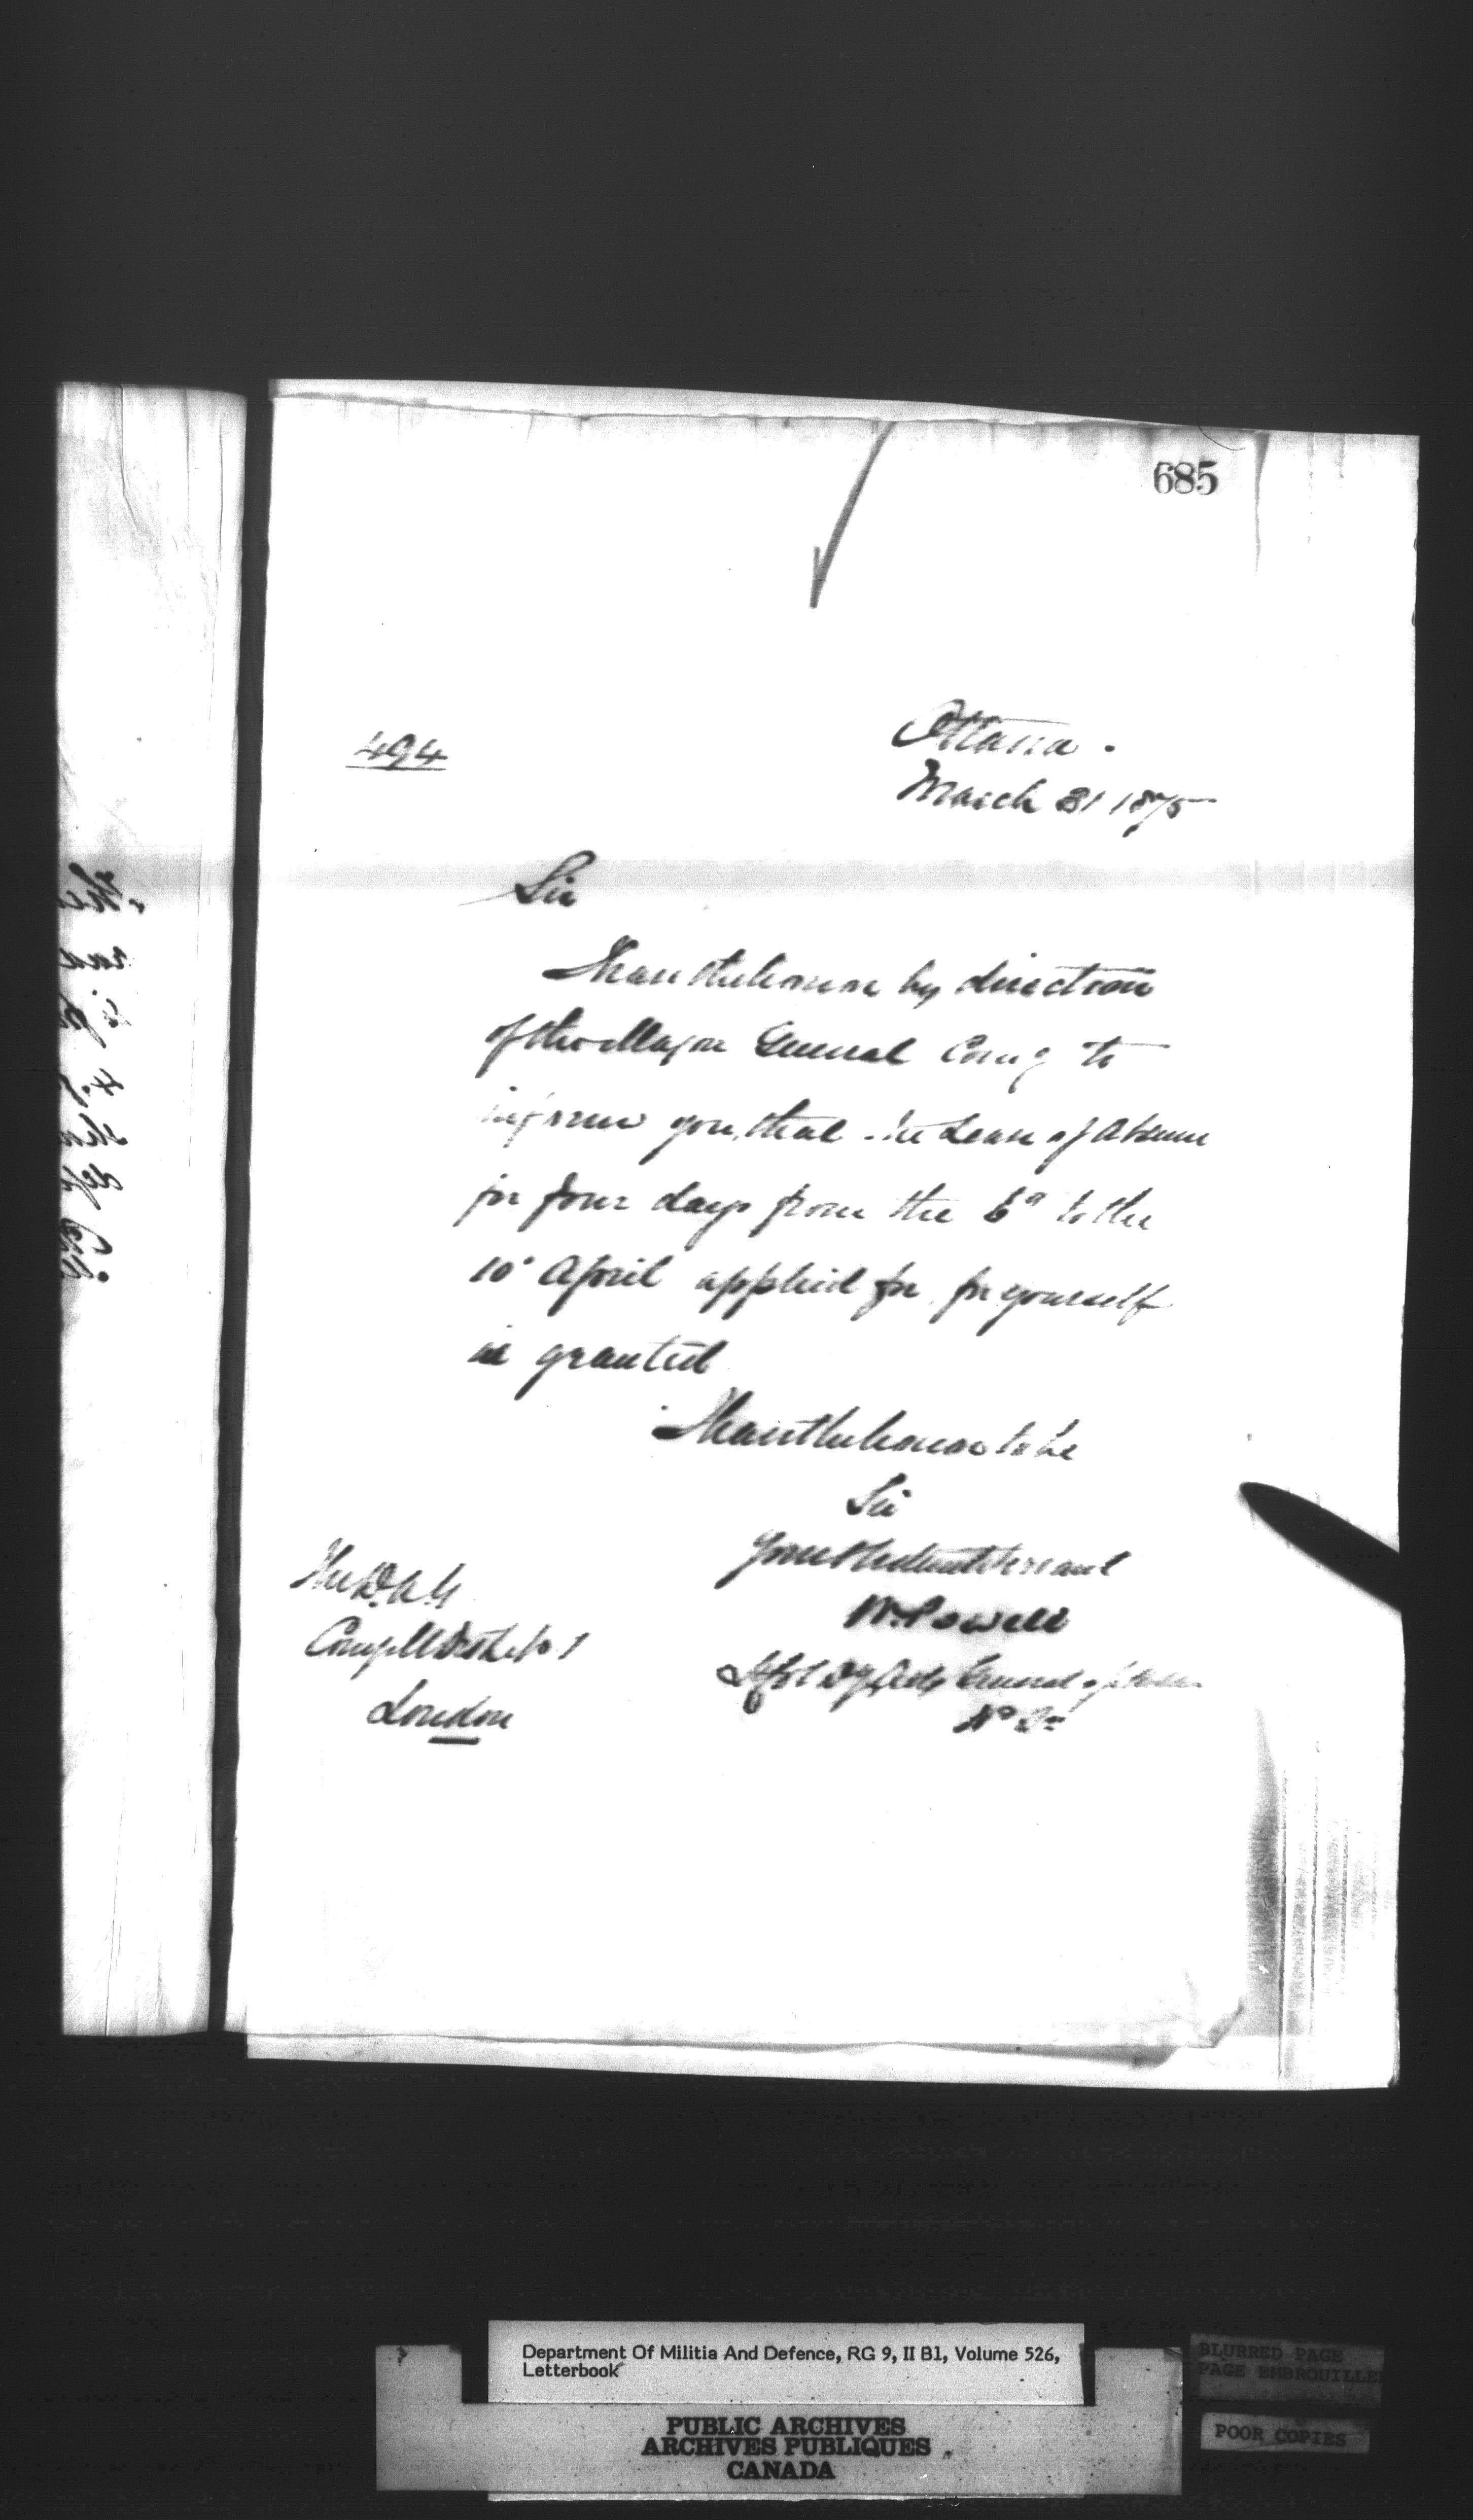 685
494
Ottawa.
March 31 1875
Sir
I have the honor by direction
of the Major General Comg to
inform you, that the Leave of Absence
for four days from the 6th to the
10th April applied for, for yourself
is granted
I have the honor to be
Sir
Your Obedient Servant
W. Powell
Lt Col Dy Adjt General of
The D.A.G
Comg M Dist No 1
London
Department Of Militia And Defence, RG 9, II B1, Volume 526,
Letterbook
PUBLIC ARCHIVES
ARCHIVES PUBLIQUES
CANADA
BLURRED PAGE
PAGE EMBROUILLEE
POOR COPIES